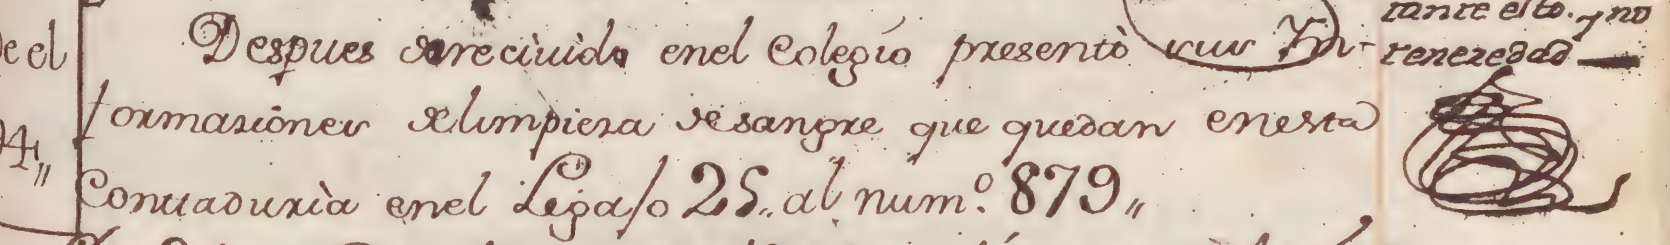 Despues de recivido enel Colegio presentò sus In-
formaziónes de limpieza de sangre que quedan enesta
Contaduria enel Legajo 25,, al numº. 879,,
tante esto. y no
tenezedad
e el
94,,